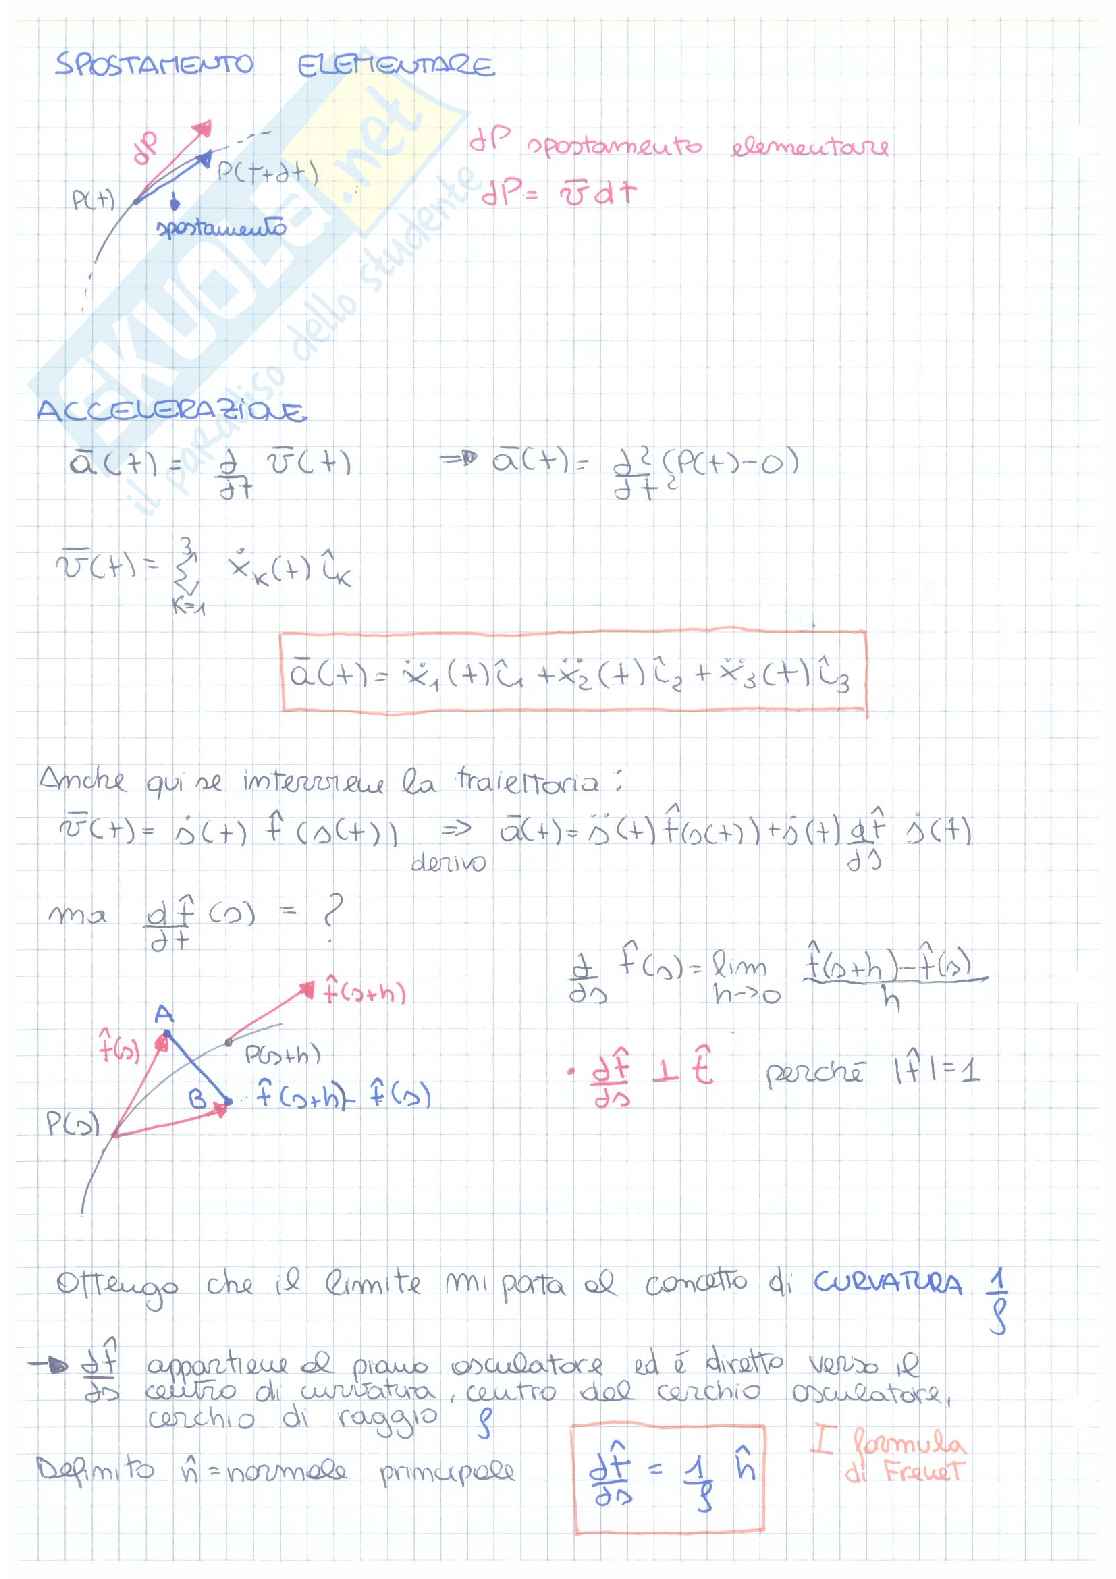 SPOSTAMENTO ELEMENTARE
dP
P(t)
P(t+dt)
spostamento
dP spostamento elementare
dP = v̄ dt
SKUOLA.net
il paradiso dello studente
ACCELERAZIONE
ā(t) = d/dt v̄(t) => ā(t) = d²/dt² (P(t)-O)
v̄(t) = Σ_{K=1}^{3} ẋ_K(t) î_K
ā(t) = ẍ₁(t) î₁ + ẍ₂(t) î₂ + ẍ₃(t) î₃
Anche qui se interviene la traiettoria:
v̄(t) = ṡ(t) t̂(s(t)) => derivo ā(t) = s̈(t) t̂(s(t)) + ṡ(t) dt̂/ds ṡ(t)
ma dt̂/dt (s) = ?
d/ds t̂(s) = lim h->0 (t̂(s+h) - t̂(s))/h
t̂(s+h)
A
t̂(s)
P(s+h)
B t̂(s+h)- t̂(s)
P(s)
• dt̂/ds ⊥ t̂ perché |t̂| = 1
Ottengo che il limite mi porta al concetto di CURVATURA 1/ρ
-> dt̂/ds appartiene al piano osculatore ed é diretto verso il
centro di curvatura, centro del cerchio osculatore,
cerchio di raggio ρ
Definito n̂ = normale principale
dt̂/ds = 1/ρ n̂
I formula
di Frenet